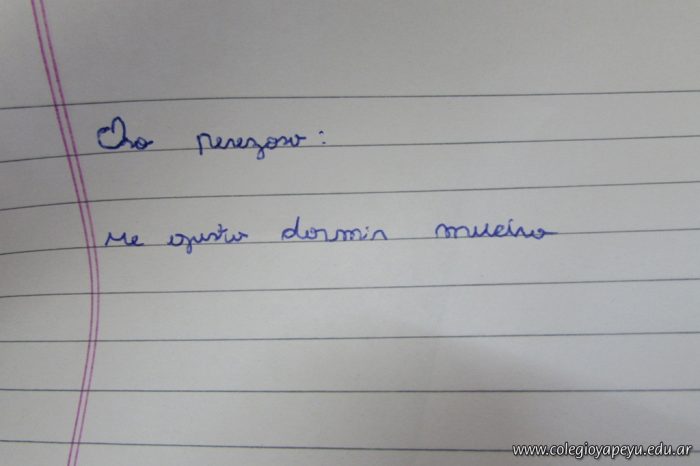 Oso perezoso:
Me gusta dormir mucho
www.colegioyapeyu.edu.ar